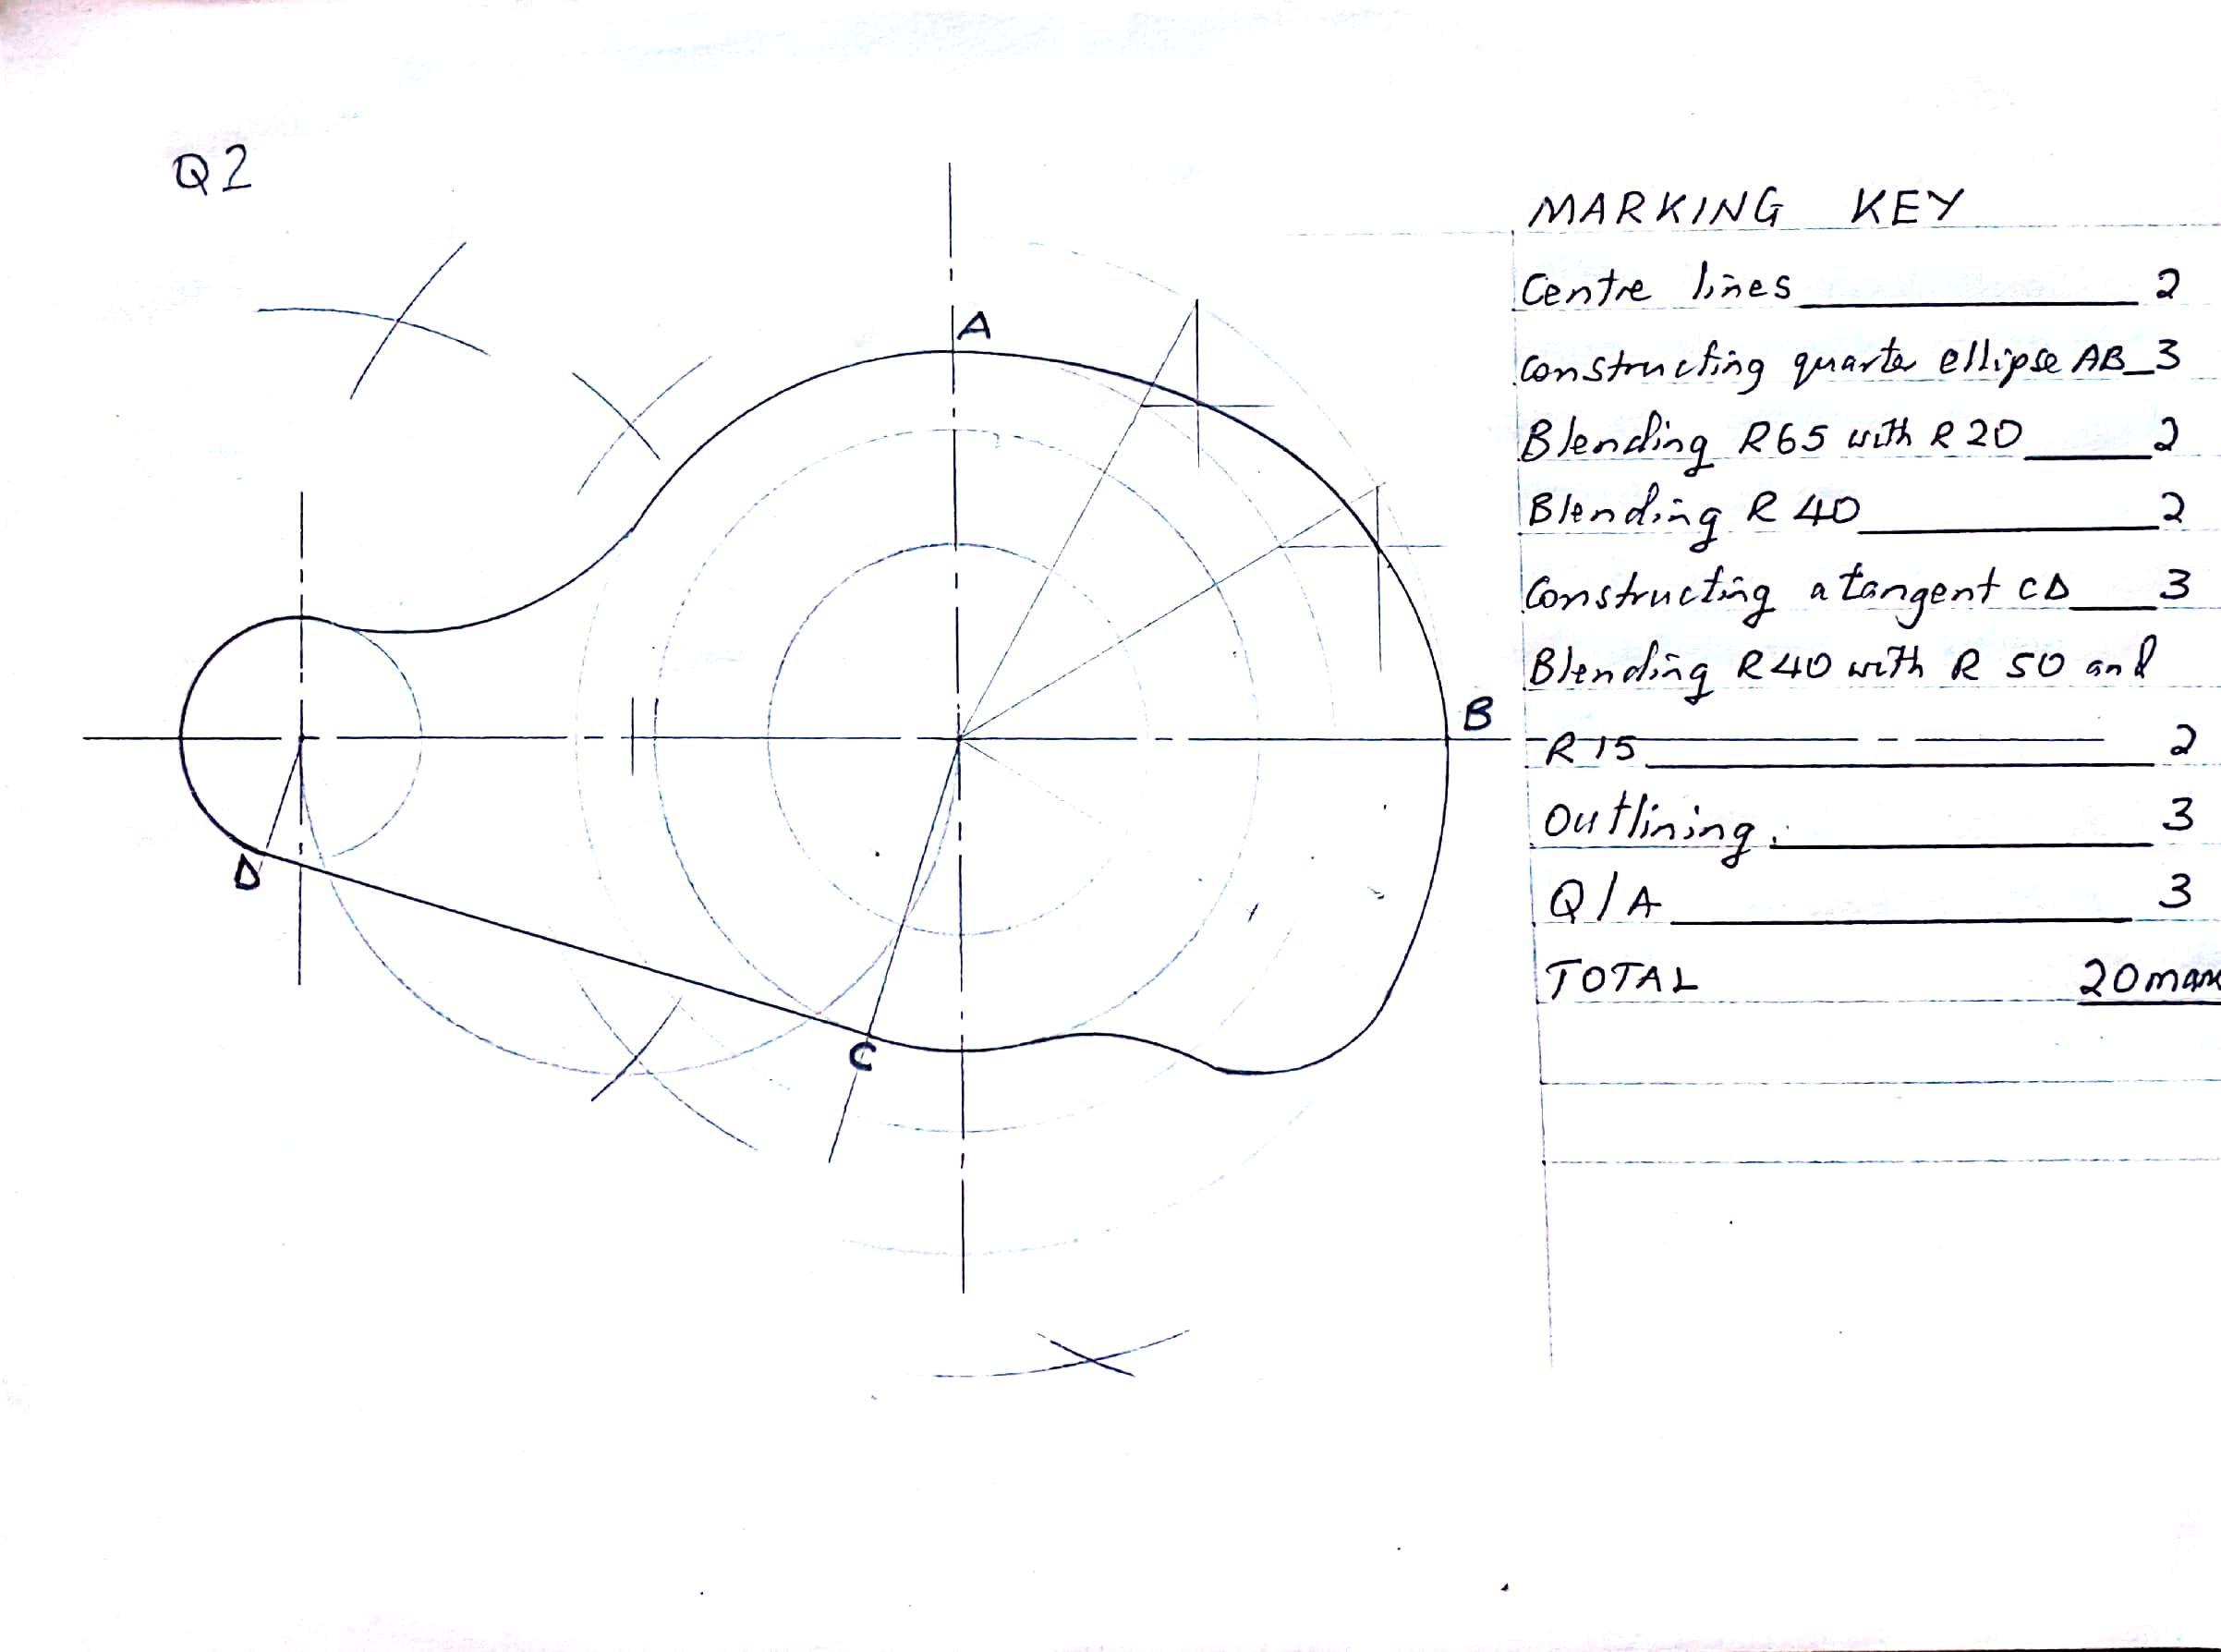 Q2
A
B
C
D
MARKING KEY
Centre lines 2
Constructing quarter ellipse AB 3
Blending R65 with R20 2
Blending R 40 2
Constructing a tangent CD 3
Blending R40 with R 50 and
R 15 2
Outlining. 3
Q/A 3
TOTAL 20 mar